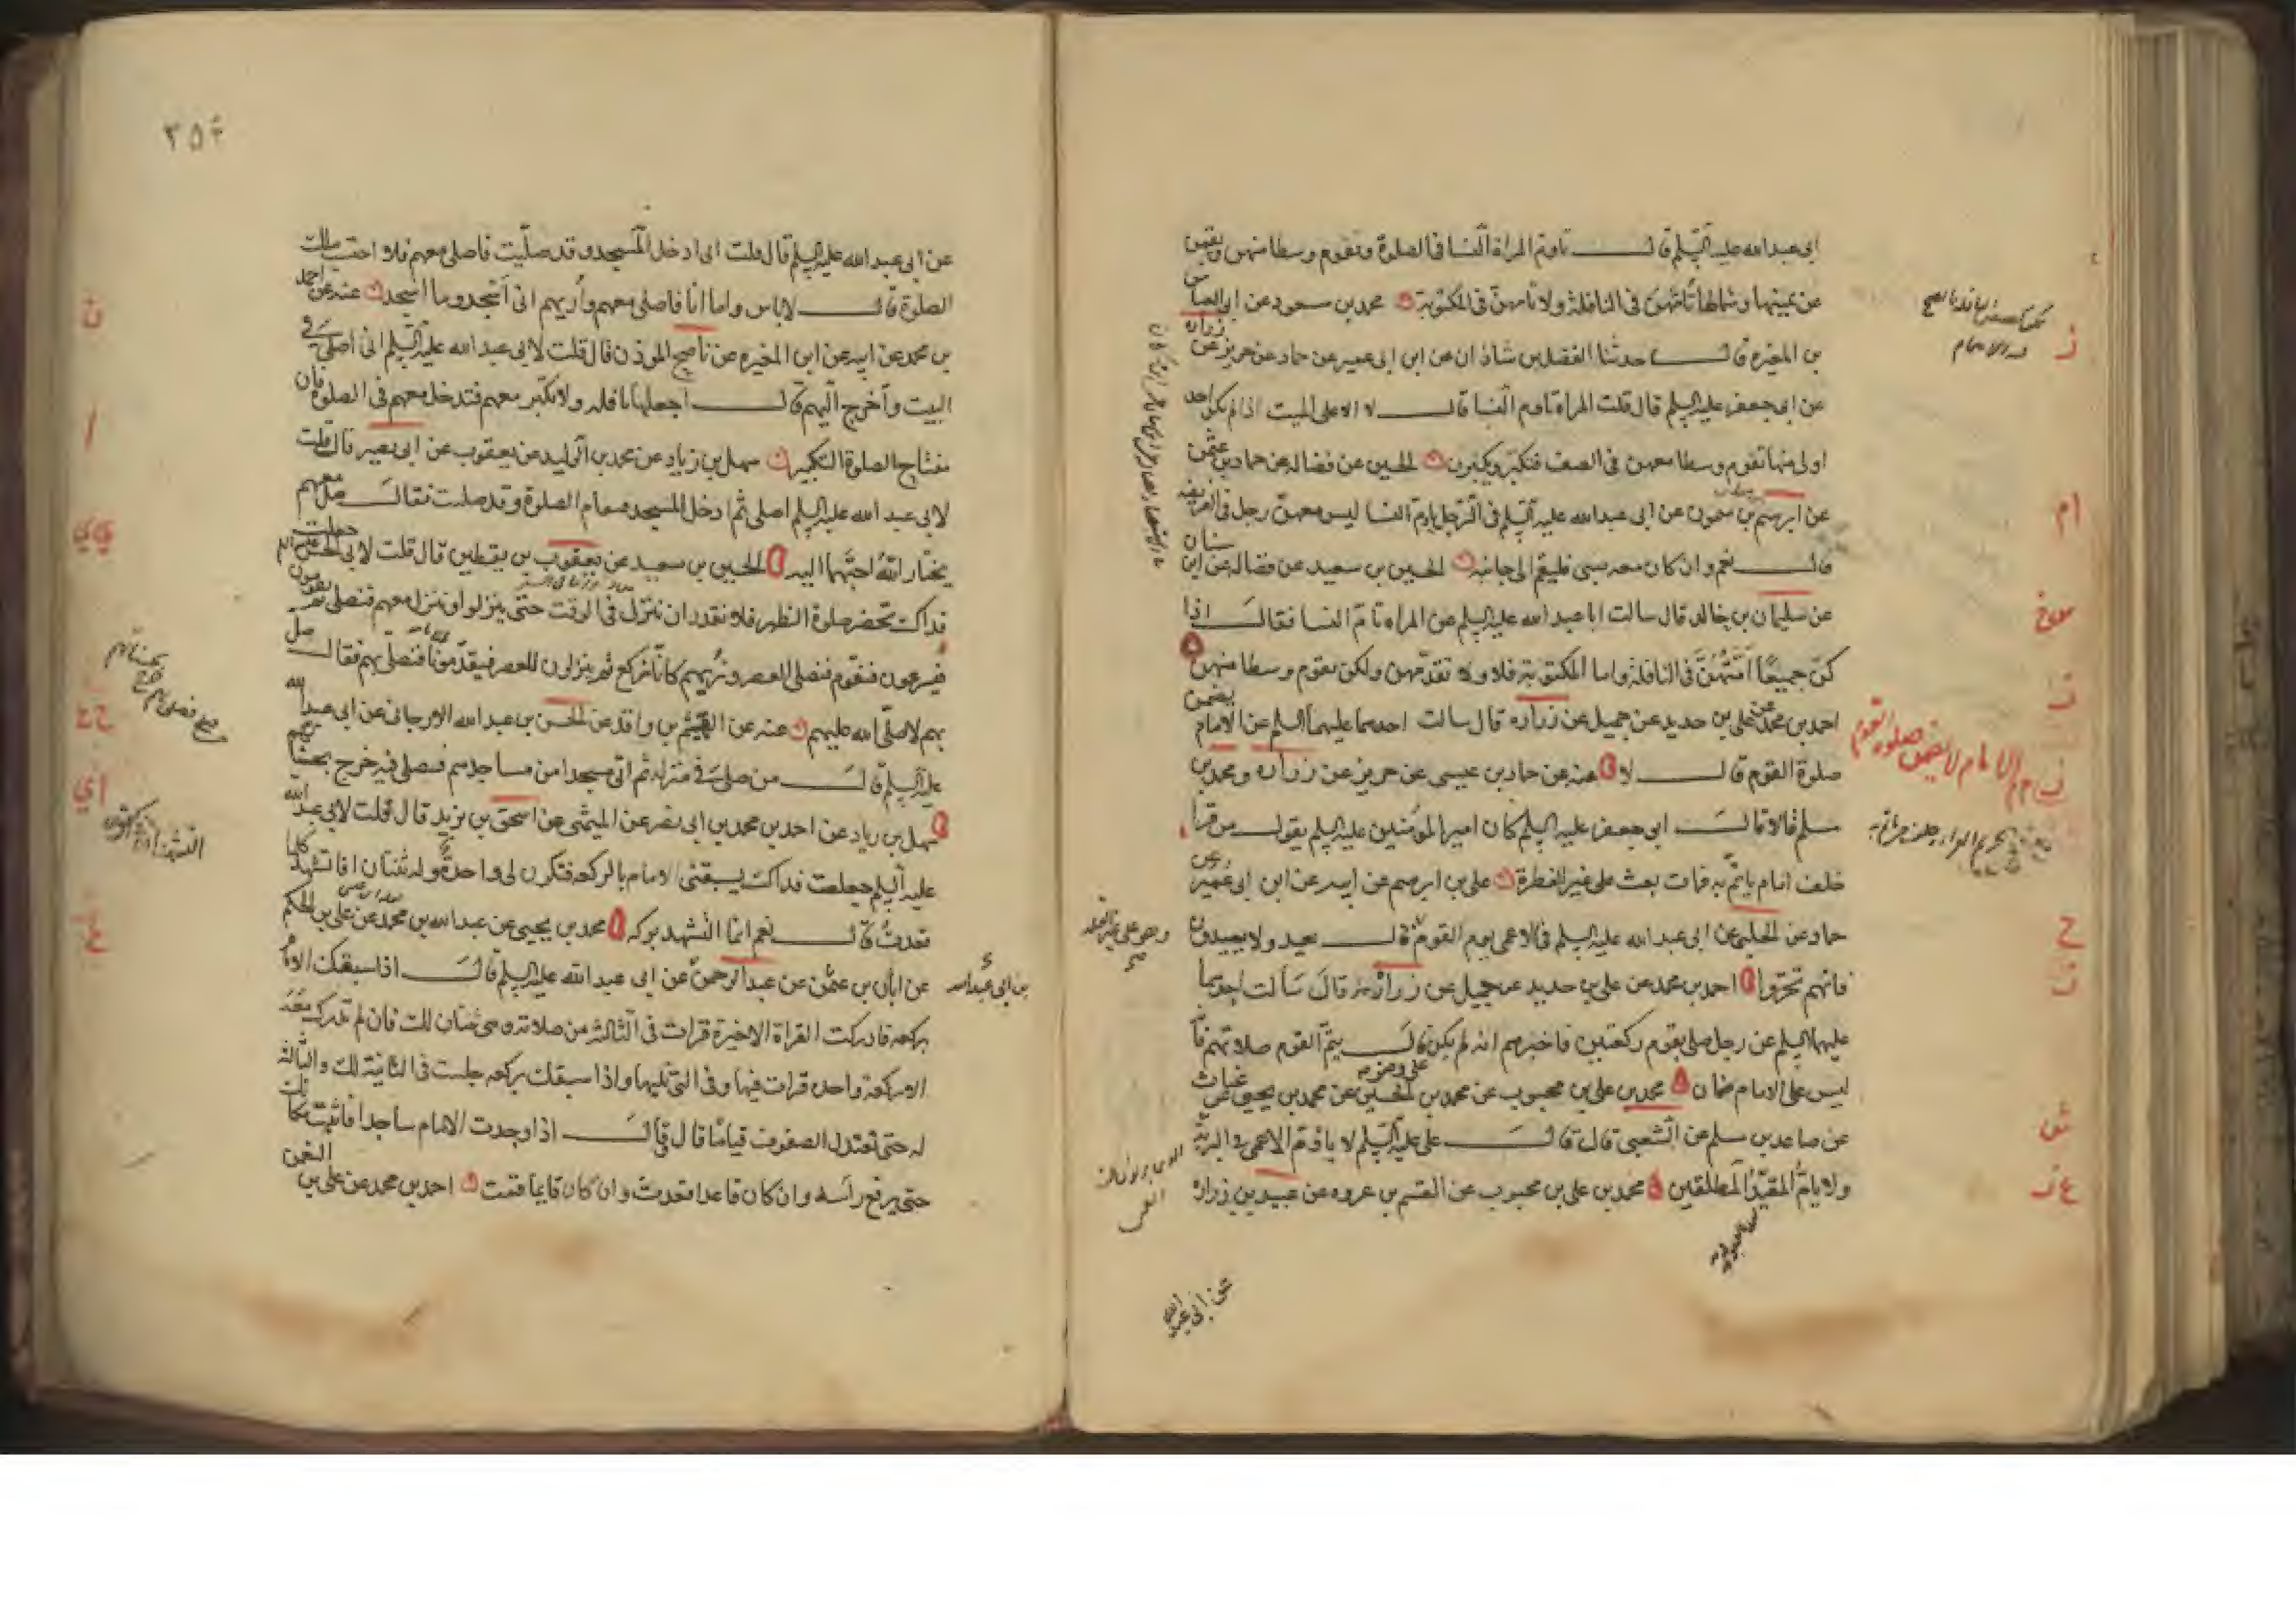 ابى عبد الله عليه السلم قال تاوم المراة النسا فى الصلوة وتقوم وسطا منهن ويقمن
عن يمينها وشمالها تامهن فى النافلة ولا تامهن فى المكتوبة محمد بن مسعود عن ابى العباس
بن المغيره قال حدثنا الفضل بن شاذان عن ابن ابى عمير عن حماد عن حريز عن زراره
عن ابى جعفر عليه السلم قال قلت المراه تاوم النسا قال لا الا على الميت اذا لم يكن احد
اولى منها تقوم وسطا معهن فى الصف فتكبر ويكبرن الحسين عن فضاله عن حماد بن عثمن
عن ابرهيم بن ميمون عن ابى عبد الله عليه السلم فى الرجل ياوم النسا ليس معهن رجل فى الفريضه
قال نعم وان كان معه صبى فليقم الى جانبه الحسين بن سعيد عن فضاله عن ابن سنان
عن سليمان بن خالد قال سالت ابا عبد الله عليه السلم عن المراه تام النسا فقال اذا
كن جميعا امتهن فى النافلة واما المكتوبة فلا ولا تقدمهن ولكن تقوم وسطا منهن
احمد بن محمد عن على بن حديد عن جميل عن زراره قال سالت احدهما عليهما السلم عن الامام يضمن
صلوة القوم قال لا عنه عن حماد بن عيسى عن حريز عن زراره ومحمد بن
مسلم قالا قال ابى جعفر عليه السلم كان امير المؤمنين عليه السلم يقول من قرا
خلف امام ياتم به فمات بعث على غير الفطرة على بن ابرهيم عن ابيه عن ابن ابى عمير عن
حماد عن الحلبى عن ابى عبد الله عليه السلم فى الاعمى يوم القوم قال يعيد ولا يعيدون
فانهم تحروا احمد بن محمد عن على بن حديد عن جميل عن زراره قال سالت احدهما
عليهما السلم عن رجل صلى بقوم ركعتين فاخبرهم انه لم يكن قال يتم القوم صلاتهم فا
ليس على الامام ضمان محمد بن على بن محبوب عن محمد بن الحسين عن محمد بن يحيى عن غياث
عن صاعد بن مسلم عن الشعبى قال قال على عليه السلم لا ياوم الاعمى فى البرية
ولا يام المقيد المطلقين محمد بن على بن محبوب عن القسم بن عروه عن عبيد بن زراره
الامام لا يضمن صلوة القوم
عن ابى عبد الله
٢٥٤
عن ابى عبد الله عليه السلم قال قلت انى ادخل المسجد وقد صليت فاصلى معهم فلا احتسب بتلك
الصلوة قال لا باس واما انا فاصلى معهم واريهم انى اسجد وما اسجد عنه عن احمد
بن محمد عن ابيه عن ابن المغيره عن ناصح الموذن قال قلت لابى عبد الله عليه السلم انى اصلى فى
البيت واخرج اليهم قال اجعلها نافله ولا تكبر معهم فتدخل معهم فى الصلوة فان
مفتاح الصلوة التكبير سهل بن زياد عن محمد بن الوليد عن يعقوب عن ابى بصير قال قلت
لابى عبد الله عليه السلم اصلى ثم ادخل المسجد فتقام الصلوة وقد صليت فقال صل معهم
يختار الله احبهما اليه الحسين بن سعيد عن يعقوب بن يقطين قال قلت لابى الحسن عليه السلم جعلت
فداك تحضر صلوة الظهر فلا نقدر ان ننزل فى الوقت حتى ينزلوا وننزل معهم فنصلى ثم يقومون
فيسرعون فنقوم فنصلى العصر ونريهم كانا نركع ثم ينزلون للعصر فيقدمونا فنصلى بهم فقال صل
بهم لا صلى الله عليهم عنه عن الهيثم بن واقد عن الحسن بن عبد الله الارجانى عن ابى عبد الله
عليه السلم قال من صلى فى منزله ثم اتى مسجدا من مساجدهم فصلى فيه خرج بحسناتهم
سهل بن زياد عن احمد بن محمد بن ابى نصر عن الميثمى عن اسحق بن يزيد قال قلت لابى عبد الله
عليه السلم جعلت فداك يسبقنى الامام بالركعه فتكون لى واحدة وله ثنتان افاتشهد كلما
قعدت قال نعم انما التشهد بركه محمد بن يحيى عن عبد الله بن محمد عن على بن الحكم
عن ابان بن عثمن عن عبد الرحمن عن ابى عبد الله عليه السلم قال اذا سبقك الامام
بن ابى عبد الله
بركعه فادركت القراة الاخيرة قرات فى الثالثه من صلاته وهى ثنتان لك فان لم تدرك معه
الا ركعة واحده قرات فيها وفى التى تليها واذا سبقك بركعه جلست فى الثانية لك والثالثه
له حتى تعتدل الصفوف قياما قال قال اذا وجدت الامام ساجدا فاثبت مكانك
حتى يرفع راسه وان كان قاعدا قعدت وان كان قايما قمت احمد بن محمد عن على بن النعمن